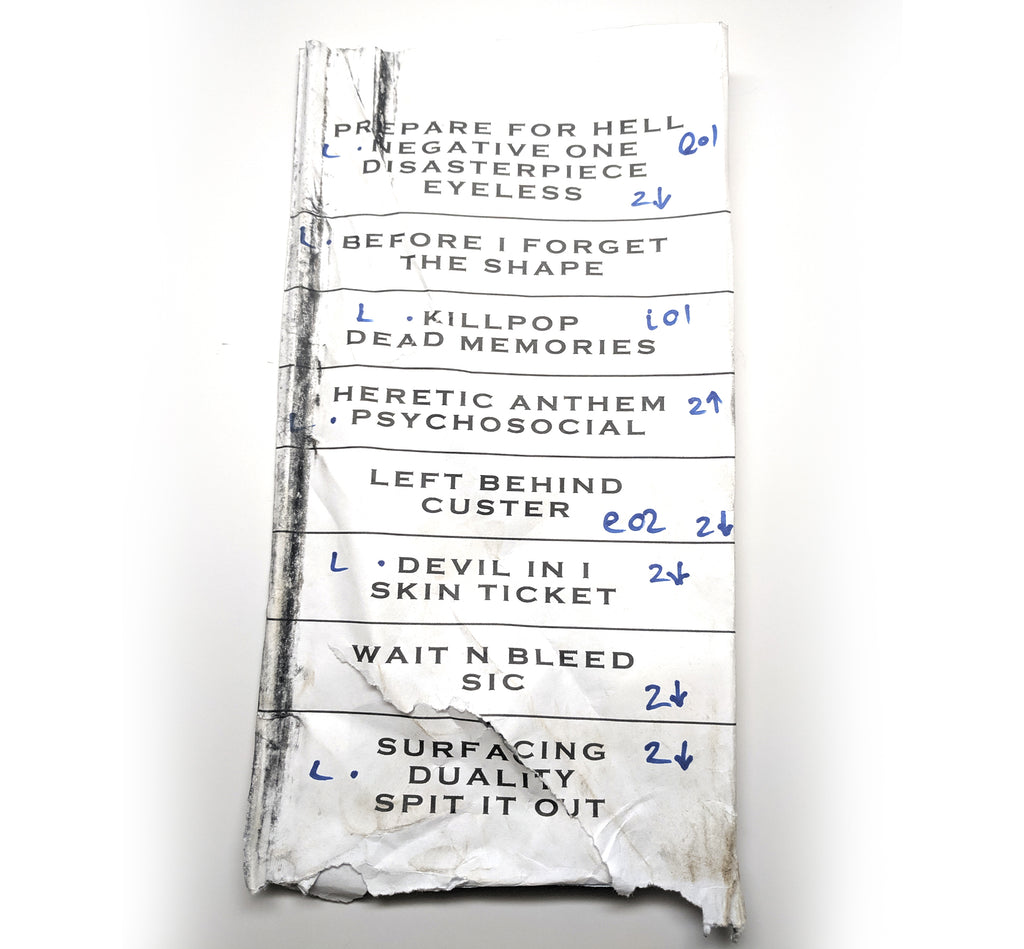 PREPARE FOR HELL
L · NEGATIVE ONE e01
DISASTERPIECE
EYELESS 2↓
L · BEFORE I FORGET
THE SHAPE
L · KILLPOP i01
DEAD MEMORIES
HERETIC ANTHEM 2↑
L · PSYCHOSOCIAL
LEFT BEHIND
CUSTER e02 2↓
L · DEVIL IN I 2↓
SKIN TICKET
WAIT N BLEED
SIC 2↓
SURFACING 2↓
L · DUALITY
SPIT IT OUT